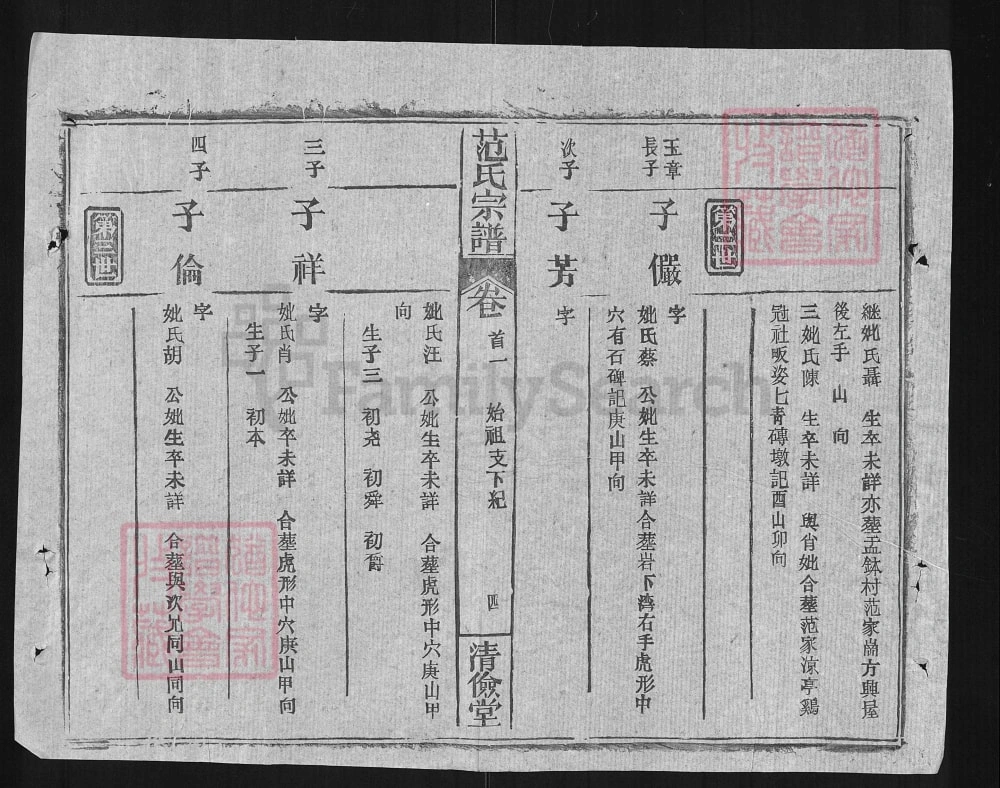 継妣氏聶 生卒未詳亦塟盂鉢村范家嵩方興屋
後左手 山 向
三妣氏陳 生卒未詳 與肖妣合塟范家涼亭鷄
冠社畈姿七靑磚墩記酉山卯向
第三世
玉章長子
子儼
字
妣氏蔡 公妣生卒未詳合塟岩下灣右手虎形中
穴有石碑記庚山甲向
次子
子芳
字
范氏宗譜
卷首一 始祖支下紀 四
清儉堂
妣氏汪 公妣生卒未詳 合塟虎形中穴庚山甲
向
生子三 初尧 初舜 初爵
三子
子祥
字
妣氏肖 公妣卒未詳 合塟虎形中穴庚山甲向
生子一 初本
四子
子倫
字
妣氏胡 公妣生卒未詳 合塟與次兄同山同向
第三世
FamilySearch